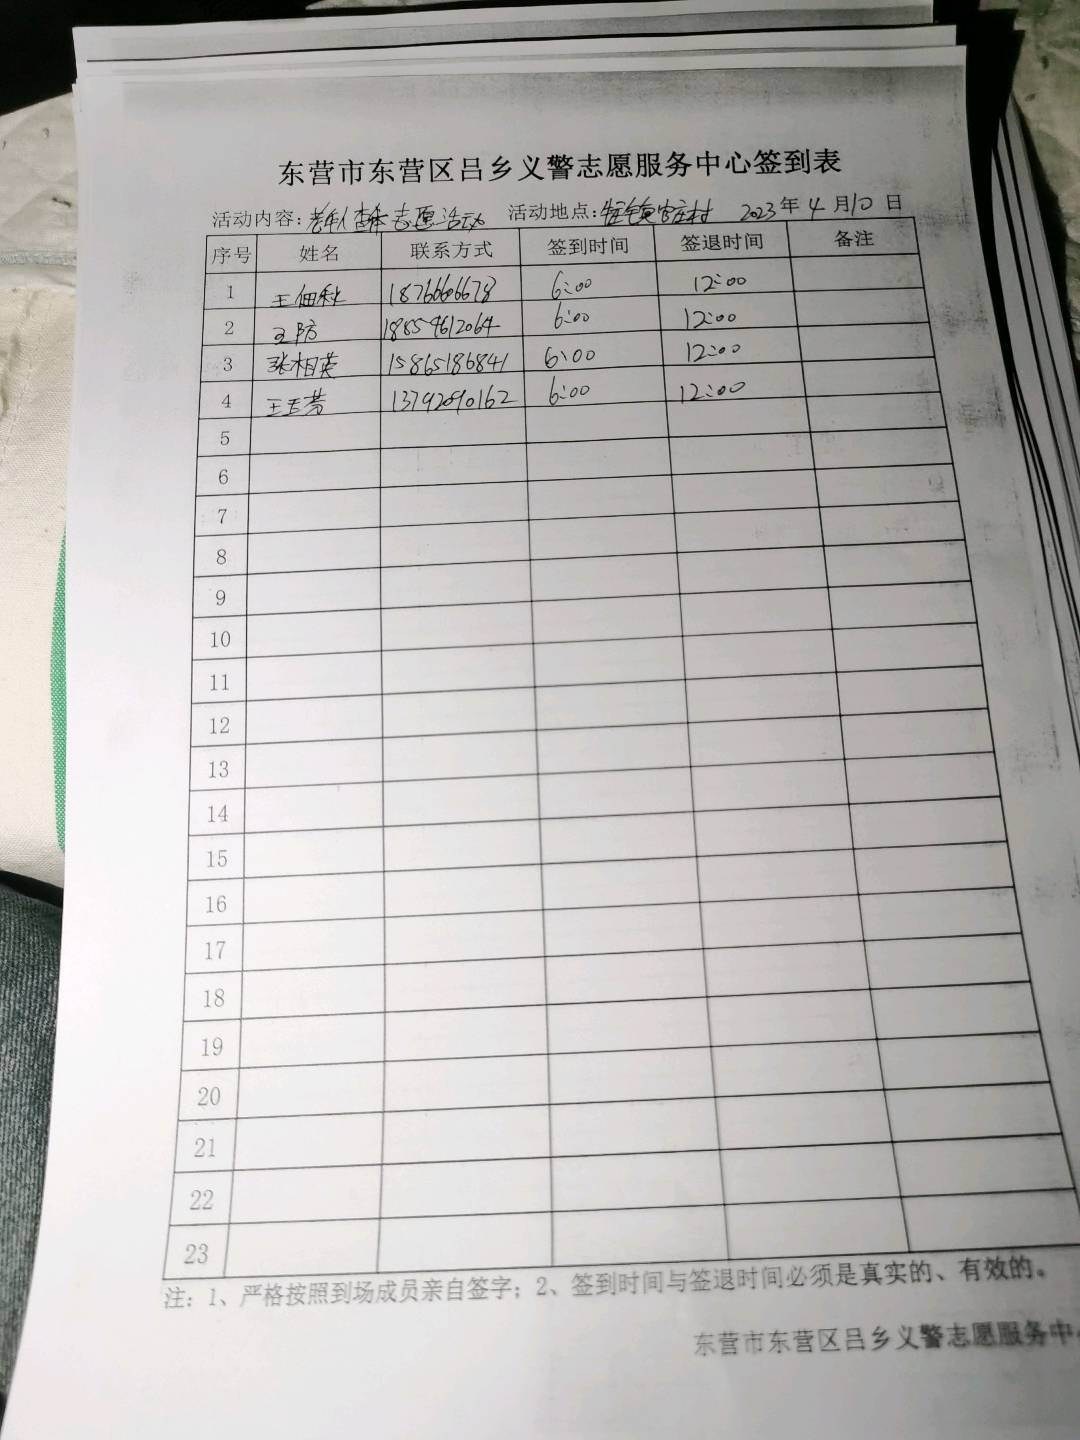 东营市东营区吕乡义警志愿服务中心签到表
活动内容:老年人查体志愿活动 活动地点: 2023年4月10日
序号 姓名 联系方式 签到时间 签退时间 备注
1 王佃秋 18766606678 6:00 12:00
2 王防 18854612064 6:00 12:00
3 张相英 15865186841 6:00 12:00
4 王玉芳 13792090162 6:00 12:00
5
6
7
8
9
10
11
12
13
14
15
16
17
18
19
20
21
22
23
注：1、严格按照到场成员亲自签字；2、签到时间与签退时间必须是真实的、有效的。
东营市东营区吕乡义警志愿服务中